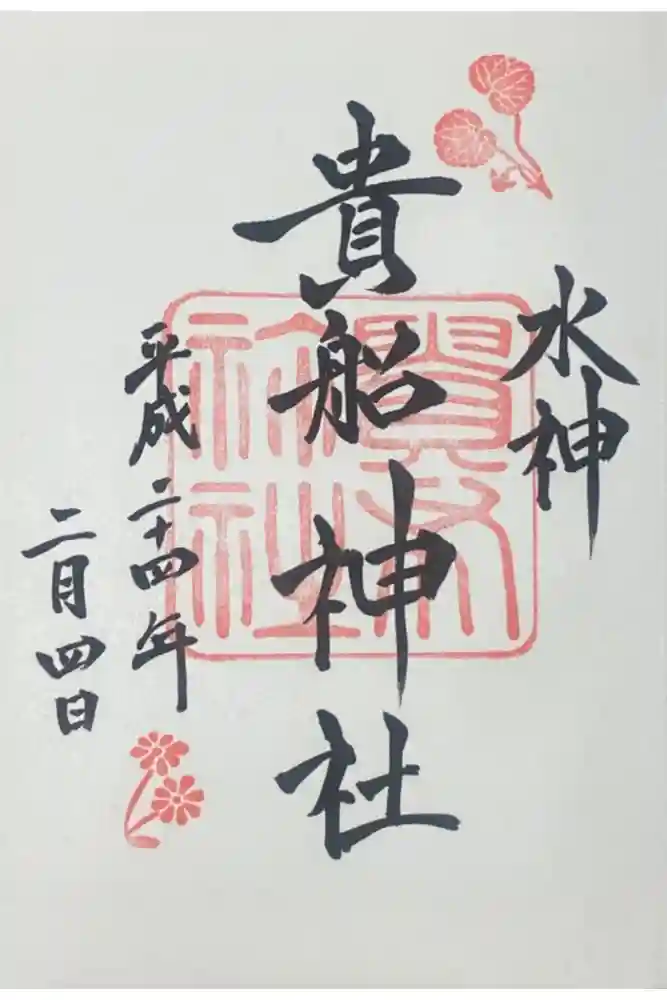 水神
貴船神社
平成二十四年
二月四日